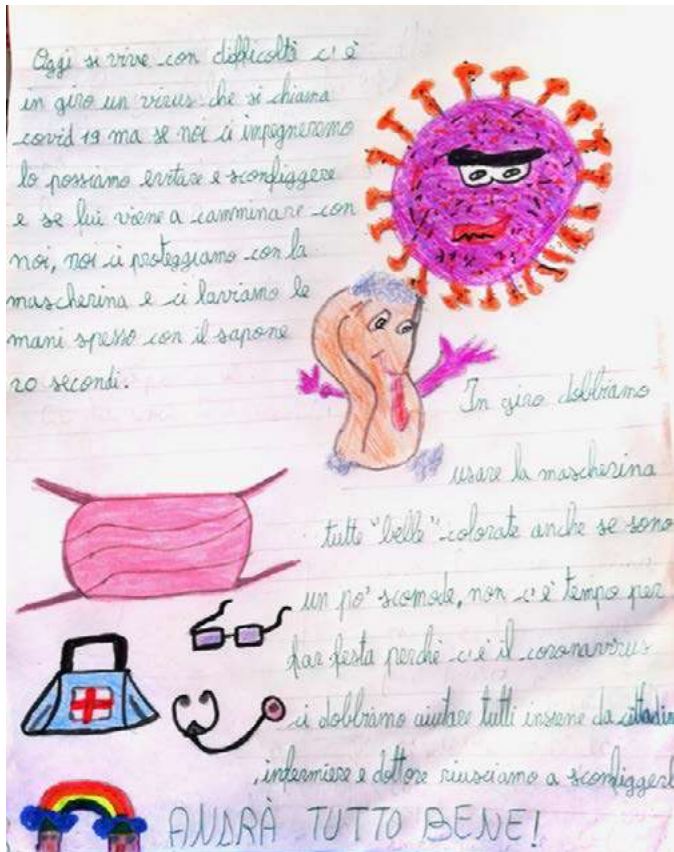 Oggi si vive con difficoltà c'è
in giro un virus che si chiama
covid 19 ma se noi ci impegneremo
lo possiamo evitare e sconfiggere
e se lui viene a camminare con
noi, noi ci proteggiamo con la
mascherina e ci laviamo le
mani spesso con il sapone
20 secondi.
In giro dobbiamo
usare la mascherina
tutte "belle" colorate anche se sono
un po' scomode, non c'è tempo per
far festa perchè c'è il coronavirus
ci dobbiamo aiutare tutti insieme da cittadin
, infermiere e dottore riusciamo a sconfigger
ANDRÀ TUTTO BENE!